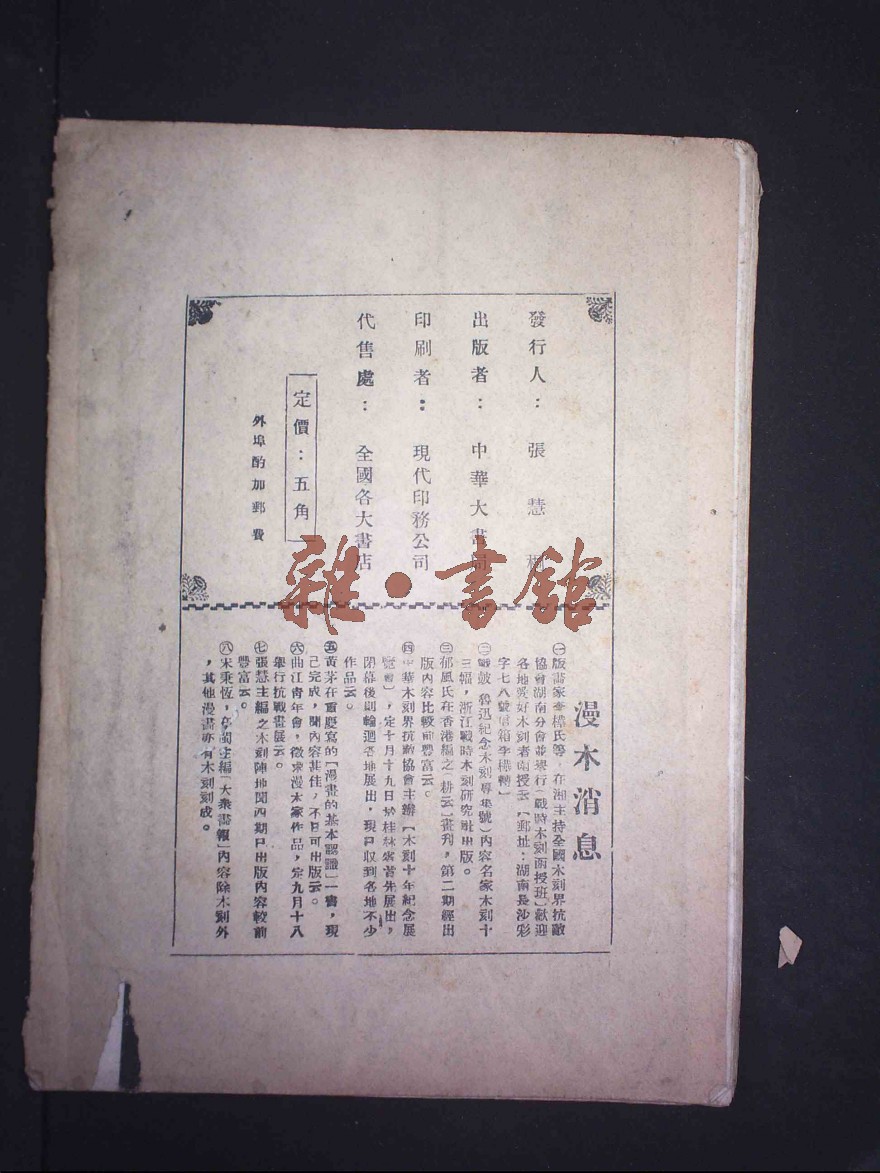 發行人：張慧
出版者：中華大書局
印刷者：現代印務公司
代售處：全國各大書店
定價：五角
外埠酌加郵費
雜·書館
漫木消息
㊀版畫家李樺氏等，在湘主持全國木刻界抗敵
協會湖南分會並舉行〔戰時木刻函授班〕歡迎
各地愛好木刻者函授云〔郵址：湖南長沙彩
字七八號信箱李樺轉〕
㊁戰鼓〔魯迅紀念木刻專集號〕內容名家木刻十
三幅，浙江戰時木刻研究社出版。
㊂郁風氏在香港編之〔耕耘〕畫刊，第二期經出
版內容比較前豐富云。
㊃中華木刻界抗敵協會主辦〔木刻十年紀念展
覽會〕，定十月十九日於桂林首先展出，
閉幕後則輪迴各地展出，現已收到各地不少
作品云。
㊄黃茅在重慶寫的〔漫畫的基本認識〕一書，現
已完成，聞內容甚佳，不日可出版云。
㊅曲江青年會，徵求漫木家作品，定九月十八
舉行抗戰畫展云。
㊆張慧主編之木刻陣地閱四期已出版內容較前
豐富云。
㊇宋秉恆，主編〔大衆畫報〕內容除木刻外
，其他漫畫亦有木刻刻成。